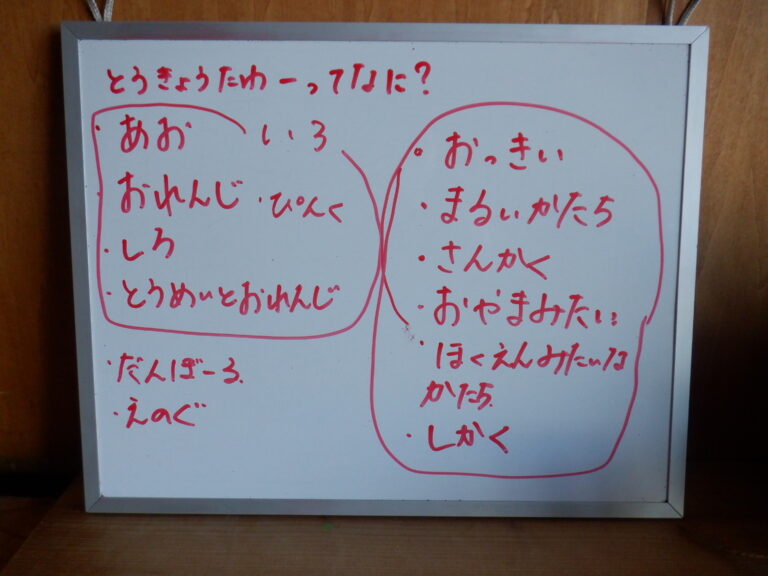 とうきょうたわーってなに?
・あお
いろ
・おれんじ
・ぴんく
・しろ
・とうめいとおれんじ
・だんぼーる
・えのぐ
・おっきい
・まるいかたち
・さんかく
・おやまみたい
・ほくえんみたいな
かたち
・しかく